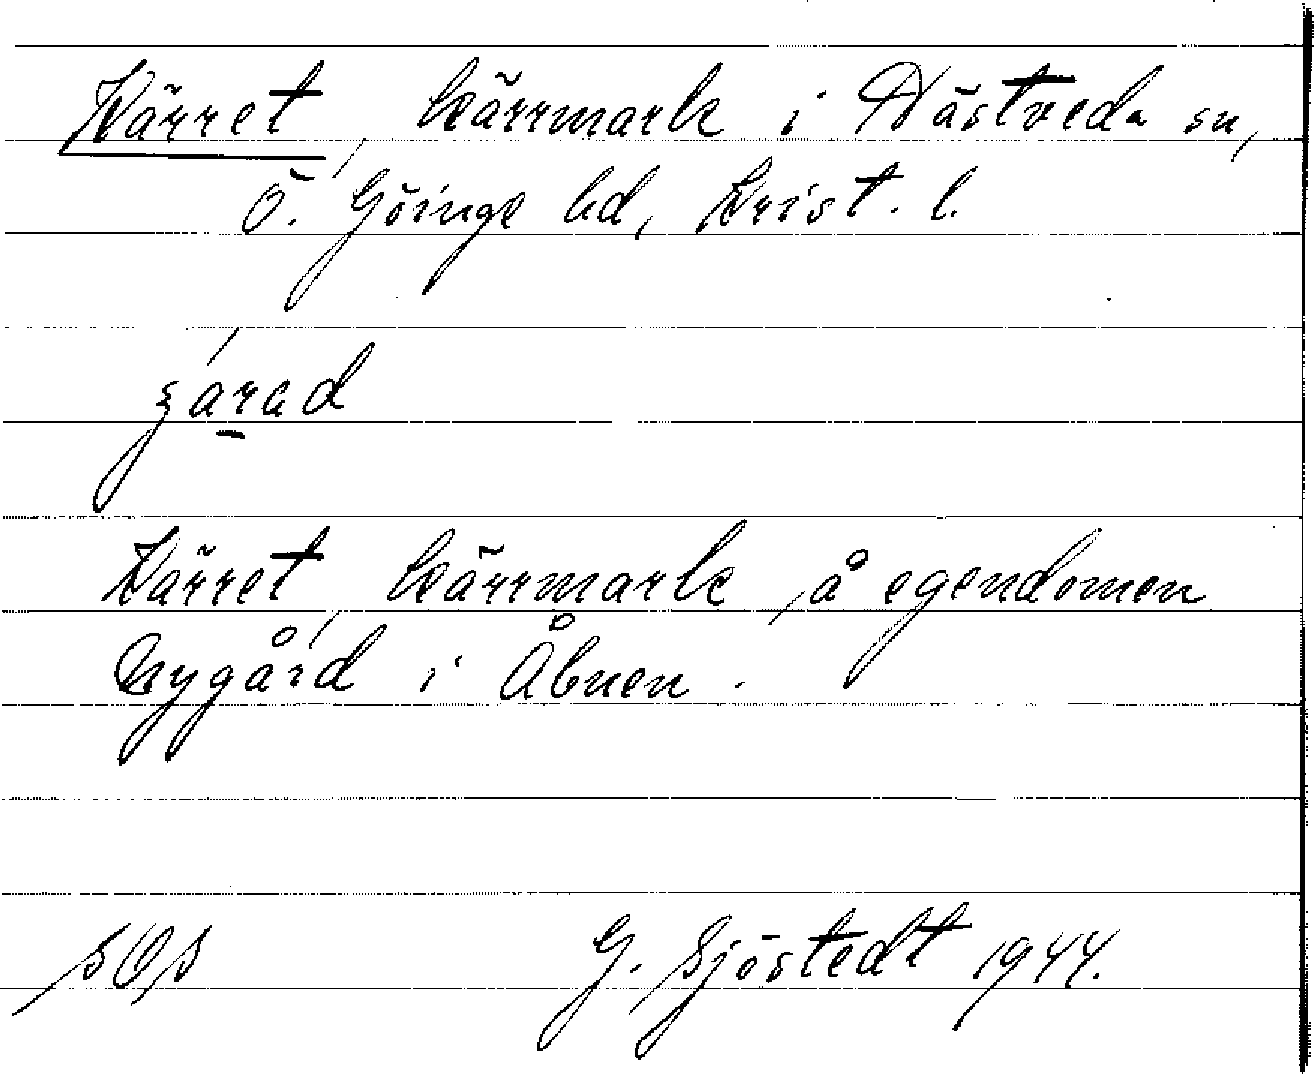 Kärret, kärrmark i Hästveda sn,
Ö. Göinge hd, Krist. l.
Kärret, kärrmark å egendomen
Nygård i Åbuen.
G. Sjöstedt 1944.